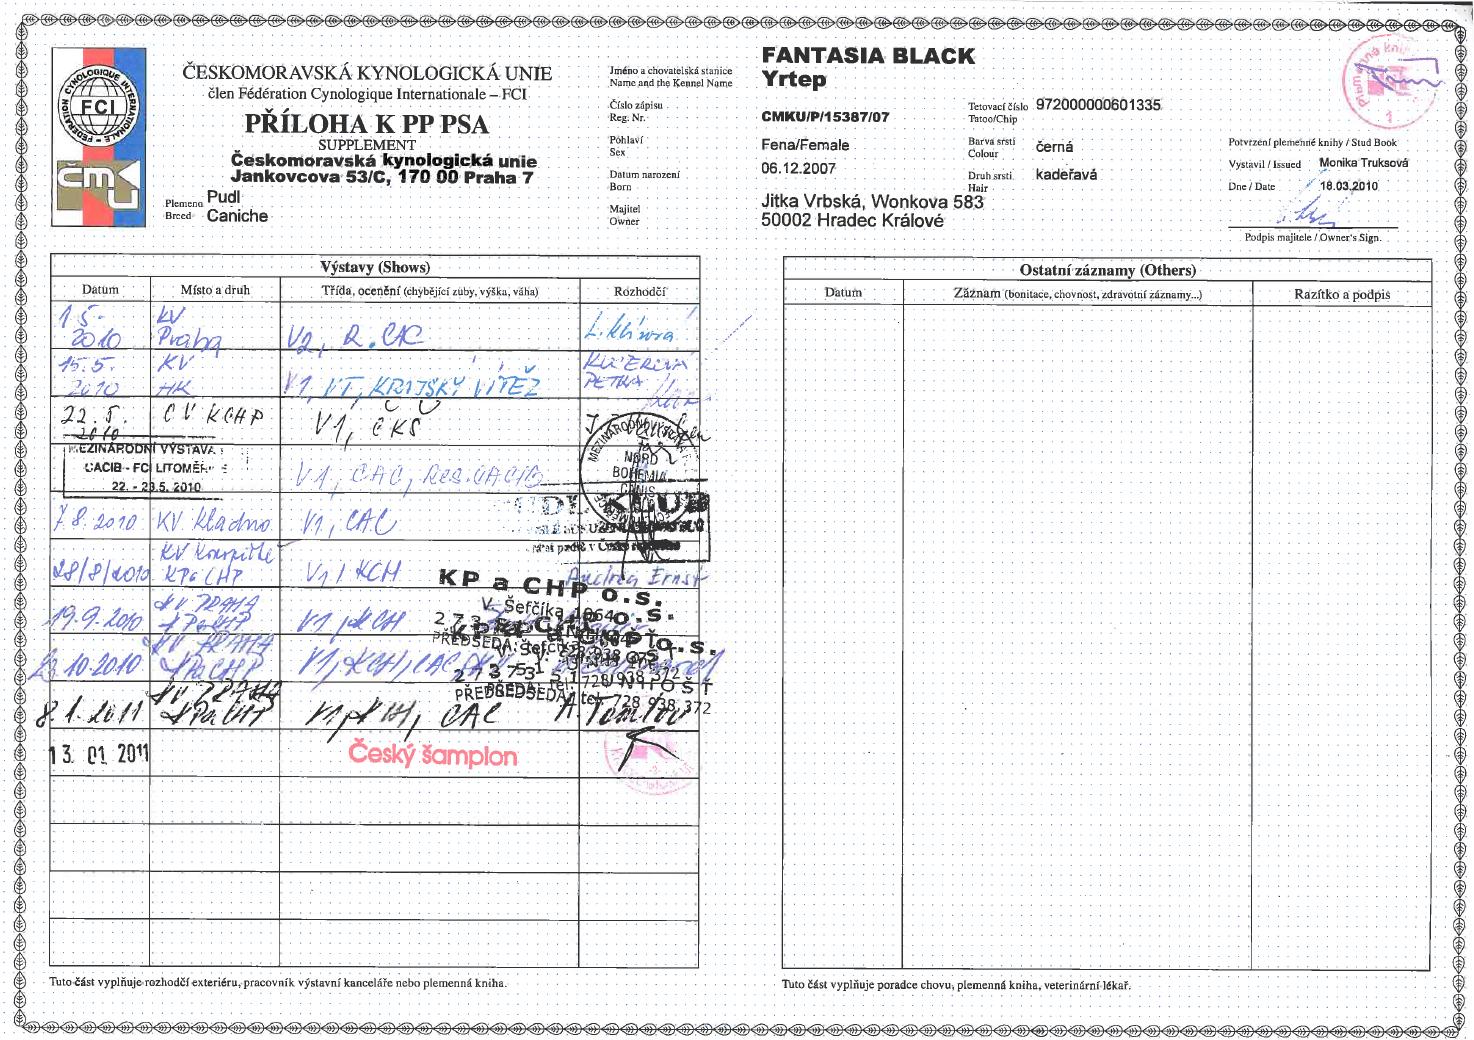 FÉDÉRATION CYNOLOGIQUE INTERNATIONALE
FCI
ČMKU
ČESKOMORAVSKÁ KYNOLOGICKÁ UNIE
člen Fédération Cynologique Internationale – FCI
PŘÍLOHA K PP PSA
SUPPLEMENT
Českomoravská kynologická unie
Jankovcova 53/C, 170 00 Praha 7
Plemeno Pudl
Breed Caniche
Jméno a chovatelská stanice
Name and the Kennel Name
FANTASIA BLACK
Yrtep
Číslo zápisu
Reg. Nr.
CMKU/P/15387/07
Pohlaví
Sex
Fena/Female
Datum narození
Born
06.12.2007
Majitel
Owner
Jitka Vrbská, Wonkova 583
50002 Hradec Králové
Tetovací číslo 972000000601335
Tatoo/Chip
Barva srsti
Colour
černá
Druh srsti kadeřavá
Hair
Potvrzení plemenné knihy / Stud Book
Vystavil / Issued Monika Truksová
Dne / Date 18.03.2010
Podpis majitele / Owner's Sign.
1
Výstavy (Shows)
Datum Místo a druh Třída, ocenění (chybějící zuby, výška, váha) Rozhodčí
1.5. KV
2010 Praha V2, R.CAC
15.5. KV KUČEROVÁ
2010 HK V1, VT, KRAJSKÝ VÍTĚZ PETRA
22.5. CV KCHP V1, ČKŠ
2010
MEZINÁRODNÍ VÝSTAVA
CACIB - FCI LITOMĚŘICE
22. - 23.5. 2010
V1, CAC, Res.CACIB
MEZINÁRODNÍ VÝSTAVA
NORD
BOHEMIA
CANIS
7.8.2010 KV Kladno V1, CAC
KLUB
KV
28/8/2010 KPaCHP V1, KCH Andrea Ernst
KP a CHP o.s.
V. Šefčíka 1064
19.9.2010 KV PRAHA
KPaCHP V1, KCH
10.2010 KV PRAHA
KPaCHP V1, KCH, CAC
273 51 UNHOŠŤ
PŘEDSEDA: tel. 728 938 372
8.1.2011 KV PRAHA
KPaCHP V1, KCH, CAC
13. 01. 2011 Český šampion
Tuto část vyplňuje rozhodčí exteriéru, pracovník výstavní kanceláře nebo plemenná kniha.
Ostatní záznamy (Others)
Datum Záznam (bonitace, chovnost, zdravotní záznamy...) Razítko a podpis
Tuto část vyplňuje poradce chovu, plemenná kniha, veterinární lékař.